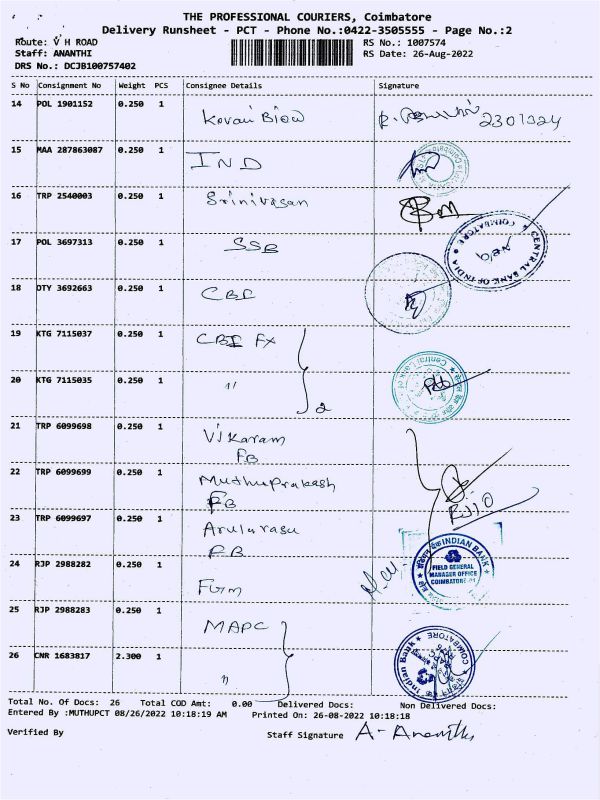 THE PROFESSIONAL COURIERS, Coimbatore
Delivery Runsheet - PCT - Phone No.:0422-3505555 - Page No.:2
Route: V H ROAD RS No.: 1007574
Staff: ANANTHI RS Date: 26-Aug-2022
DRS No.: DCJB100757402
S No Consignment No Weight PCS Consignee Details Signature
14 POL 1901152 0.250 1 Kovai 2301324
15 MAA 287863087 0.250 1 IND
16 TRP 2540003 0.250 1 Srinivasan
CENTRAL BANK OF INDIA COIMBATORE
17 POL 3697313 0.250 1 SSB
18 OTY 3692663 0.250 1
19 KTG 7115037 0.250 1 CBI FX
20 KTG 7115035 0.250 1 1/ 2
21 TRP 6099698 0.250 1 Vikaram
FB
22 TRP 6099699 0.250 1 Muthuprakash
FB
23 TRP 6099697 0.250 1 Arularasu
FB
INDIAN BANK
24 RJP 2988282 0.250 1 FGM
FIELD GENERAL
MANAGER OFFICE
COIMBATORE
25 RJP 2988283 0.250 1 MAPC
Indian Bank COIMBATORE
26 CNR 1683817 2.300 1 11
Total No. Of Docs: 26 Total COD Amt: 0.00 Delivered Docs: Non Delivered Docs:
Entered By :MUTHUPCT 08/26/2022 10:18:19 AM Printed On: 26-08-2022 10:18:18
Verified By Staff Signature A- Ananthi